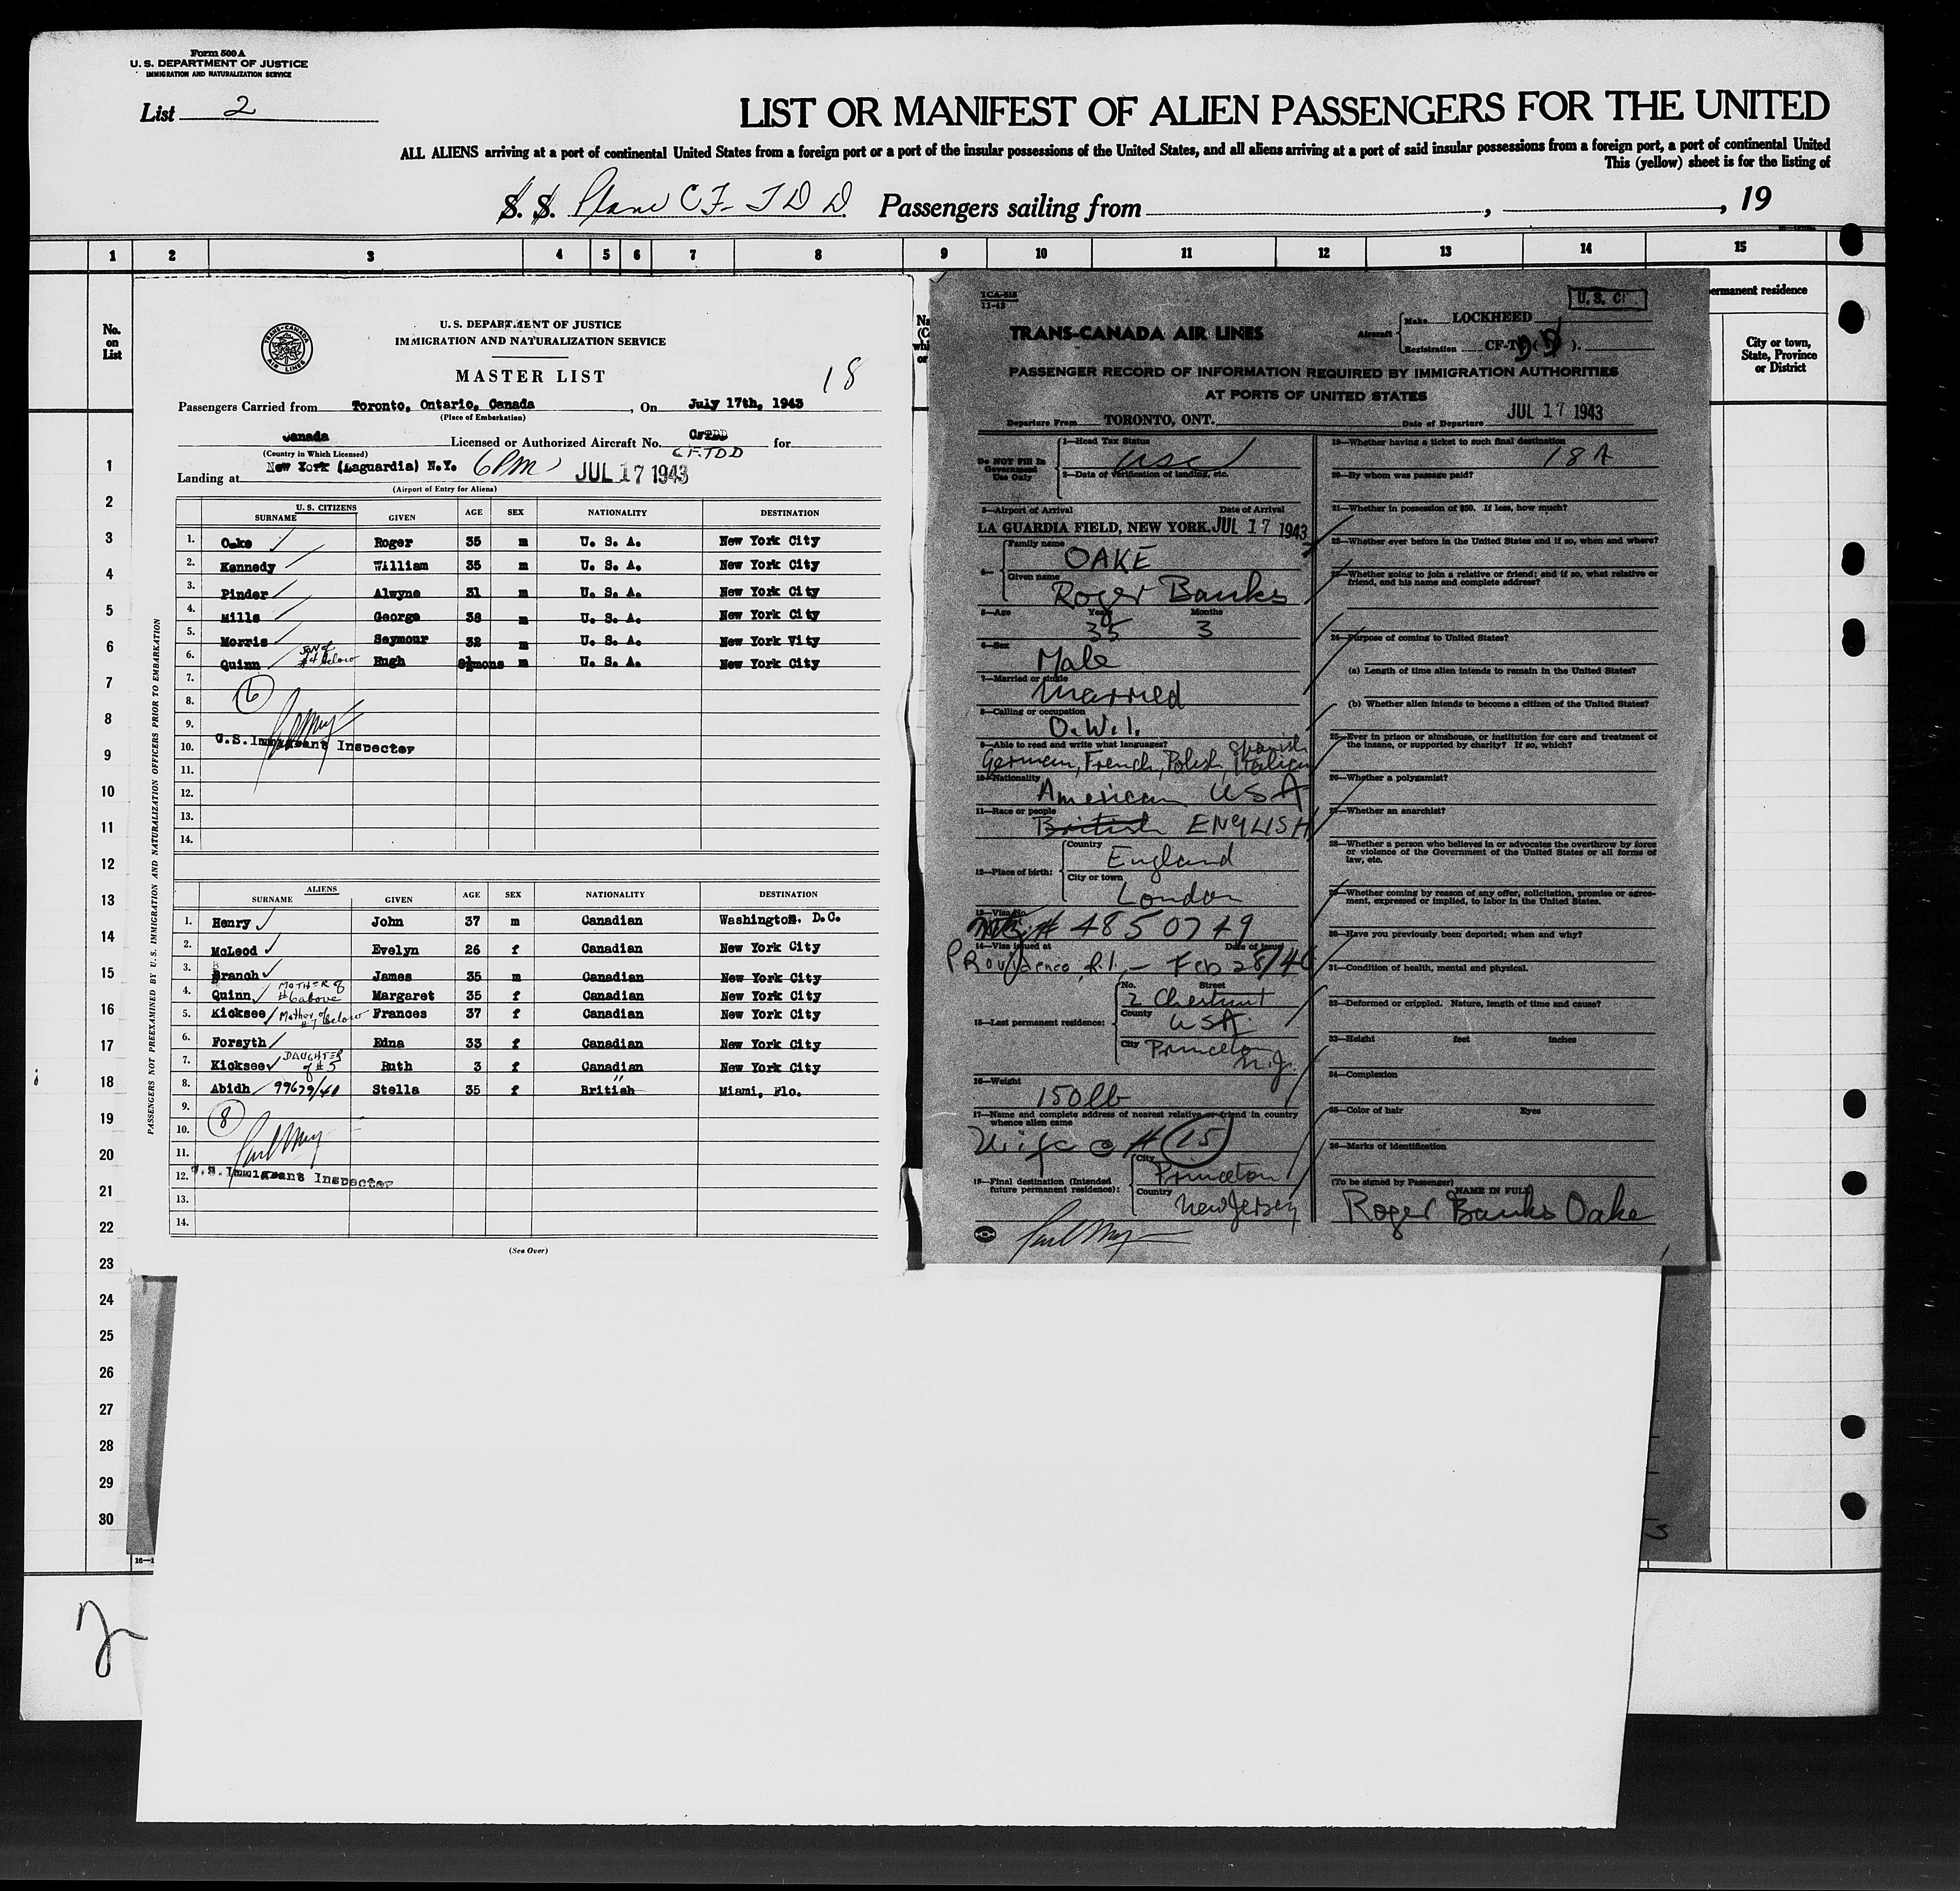 Form 500 A
U. S. DEPARTMENT OF JUSTICE
IMMIGRATION AND NATURALIZATION SERVICE
List 2
LIST OR MANIFEST OF ALIEN PASSENGERS FOR THE UNITED
ALL ALIENS arriving at a port of continental United States from a foreign port or a port of the insular possessions of the United States, and all aliens arriving at a port of said insular possessions from a foreign port, a port of continental United
This (yellow) sheet is for the listing of
S. S. Plane CF-TDD Passengers sailing from , , 19
1 2 3 4 5 6 7 8 9 10 11 12 13 14 15
No. on List
permanent residence
City or town, State, Province or District
1
2
3
4
5
6
7
8
9
10
11
12
13
14
15
16
17
18
19
20
21
22
23
24
25
26
27
28
29
30
16—1
PASSENGERS NOT PREEXAMINED BY U. S. IMMIGRATION AND NATURALIZATION OFFICERS PRIOR TO EMBARKATION
TRANS-CANADA AIR LINES
U. S. DEPARTMENT OF JUSTICE
IMMIGRATION AND NATURALIZATION SERVICE
MASTER LIST
18
Passengers Carried from Toronto, Ontario, Canada, On July 17th, 1943
(Place of Embarkation)
Canada Licensed or Authorized Aircraft No. CFTDD for
(Country in Which Licensed) CF.TDD
Landing at New York (Laguardia) N.Y. 6PM JUL 17 1943
(Airport of Entry for Aliens)
U. S. CITIZENS
SURNAME GIVEN AGE SEX NATIONALITY DESTINATION
1. Oake Roger 35 m U. S. A. New York City
2. Kennedy William 35 m U. S. A. New York City
3. Pinder Alwyne 31 m U. S. A. New York City
4. Mills George 38 m U. S. A. New York City
5. Morris Seymour 32 m U. S. A. New York Vity
6. Quinn son of #4 below Hugh 8½mons m U. S. A. New York City
7.
8. 6
9.
10. U.S. Immigrant Inspector
11.
12.
13.
14.
ALIENS
SURNAME GIVEN AGE SEX NATIONALITY DESTINATION
1. Henry John 37 m Canadian Washington. D.C.
2. McLeod Evelyn 26 f Canadian New York City
3. Branch James 35 m Canadian New York City
4. Quinn MOTHER of #6 above Margaret 35 f Canadian New York City
5. Kicksee Mother of #7 below Frances 37 f Canadian New York City
6. Forsyth Edna 33 f Canadian New York City
7. Kicksee DAUGHTER of #5 Ruth 3 f Canadian New York City
8. Abidh 99679/40 Stella 35 f British Miami, Flo.
9. 8
10.
11.
12. U.S. Immigrant Inspector
13.
14.
(See Over)
TCA-818
11-42
U. S. C.
TRANS-CANADA AIR LINES
Aircraft Make LOCKHEED
Registration CF-TDD
PASSENGER RECORD OF INFORMATION REQUIRED BY IMMIGRATION AUTHORITIES
AT PORTS OF UNITED STATES
Departure From TORONTO, ONT. Date of Departure JUL 17 1943
Do NOT Fill In Government Use Only
1—Head Tax Status
USC
2—Date of verification of landing, etc.
3—Airport of Arrival Date of Arrival
LA GUARDIA FIELD, NEW YORK. JUL 17 1943
4— Family name OAKE
Given name Roger Banks
5—Age Years 35 Months 3
6—Sex Male
7—Married or single Married
8—Calling or occupation O.W.I.
9—Able to read and write what languages?
German, French, Polish, Spanish Italian
10—Nationality American USA
11—Race or people British ENGLISH
12—Place of birth: Country England
City or town London
13—Visa No. # 4850779
14—Visa issued at Date of Issue
Providence, R.I. — Feb 28/46
15—Last permanent residence: No. Street 2 Chestnut
County USA
City Princeton N.J.
16—Weight 150 lb
17—Name and complete address of nearest relative or friend in country whence alien came
Wife @ # 15
18—Final destination (Intended future permanent residence): City Princeton
Country New Jersey
19—Whether having a ticket to such final destination
18A
20—By whom was passage paid?
21—Whether in possession of $50. If less, how much?
22—Whether ever before in the United States and if so, when and where?
23—Whether going to join a relative or friend; and if so, what relative or friend, and his name and complete address?
24—Purpose of coming to United States?
(a) Length of time alien intends to remain in the United States?
(b) Whether alien intends to become a citizen of the United States?
25—Ever in prison or almshouse, or institution for care and treatment of the insane, or supported by charity? If so, which?
26—Whether a polygamist?
27—Whether an anarchist?
28—Whether a person who believes in or advocates the overthrow by force or violence of the Government of the United States or all forms of law, etc.
29—Whether coming by reason of any offer, solicitation, promise or agreement, expressed or implied, to labor in the United States.
30—Have you previously been deported; when and why?
31—Condition of health, mental and physical.
32—Deformed or crippled. Nature, length of time and cause?
33—Height feet inches
34—Complexion
35—Color of hair Eyes
36—Marks of identification
(To be signed by Passenger) NAME IN FULL
Roger Banks Oake